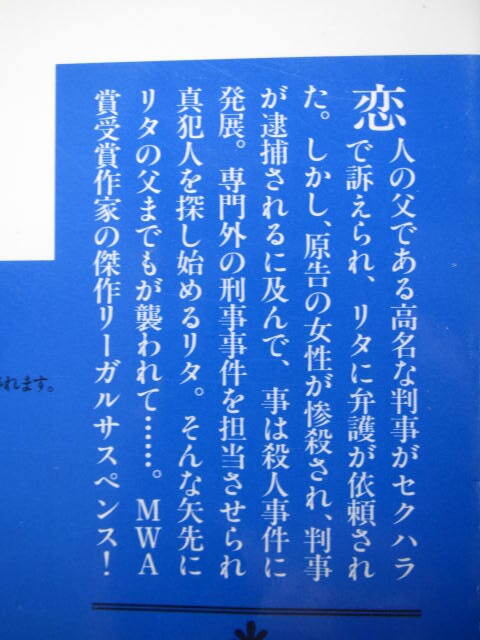 恋人の父である高名な判事がセクハラ
で訴えられ、リタに弁護が依頼され
た。しかし、原告の女性が惨殺され、判事
が逮捕されるに及んで、事は殺人事件に
発展。専門外の刑事事件を担当させられ
真犯人を探し始めるリタ。そんな矢先に
リタの父までもが襲われて……。MWA
賞受賞作家の傑作リーガルサスペンス!
れます。